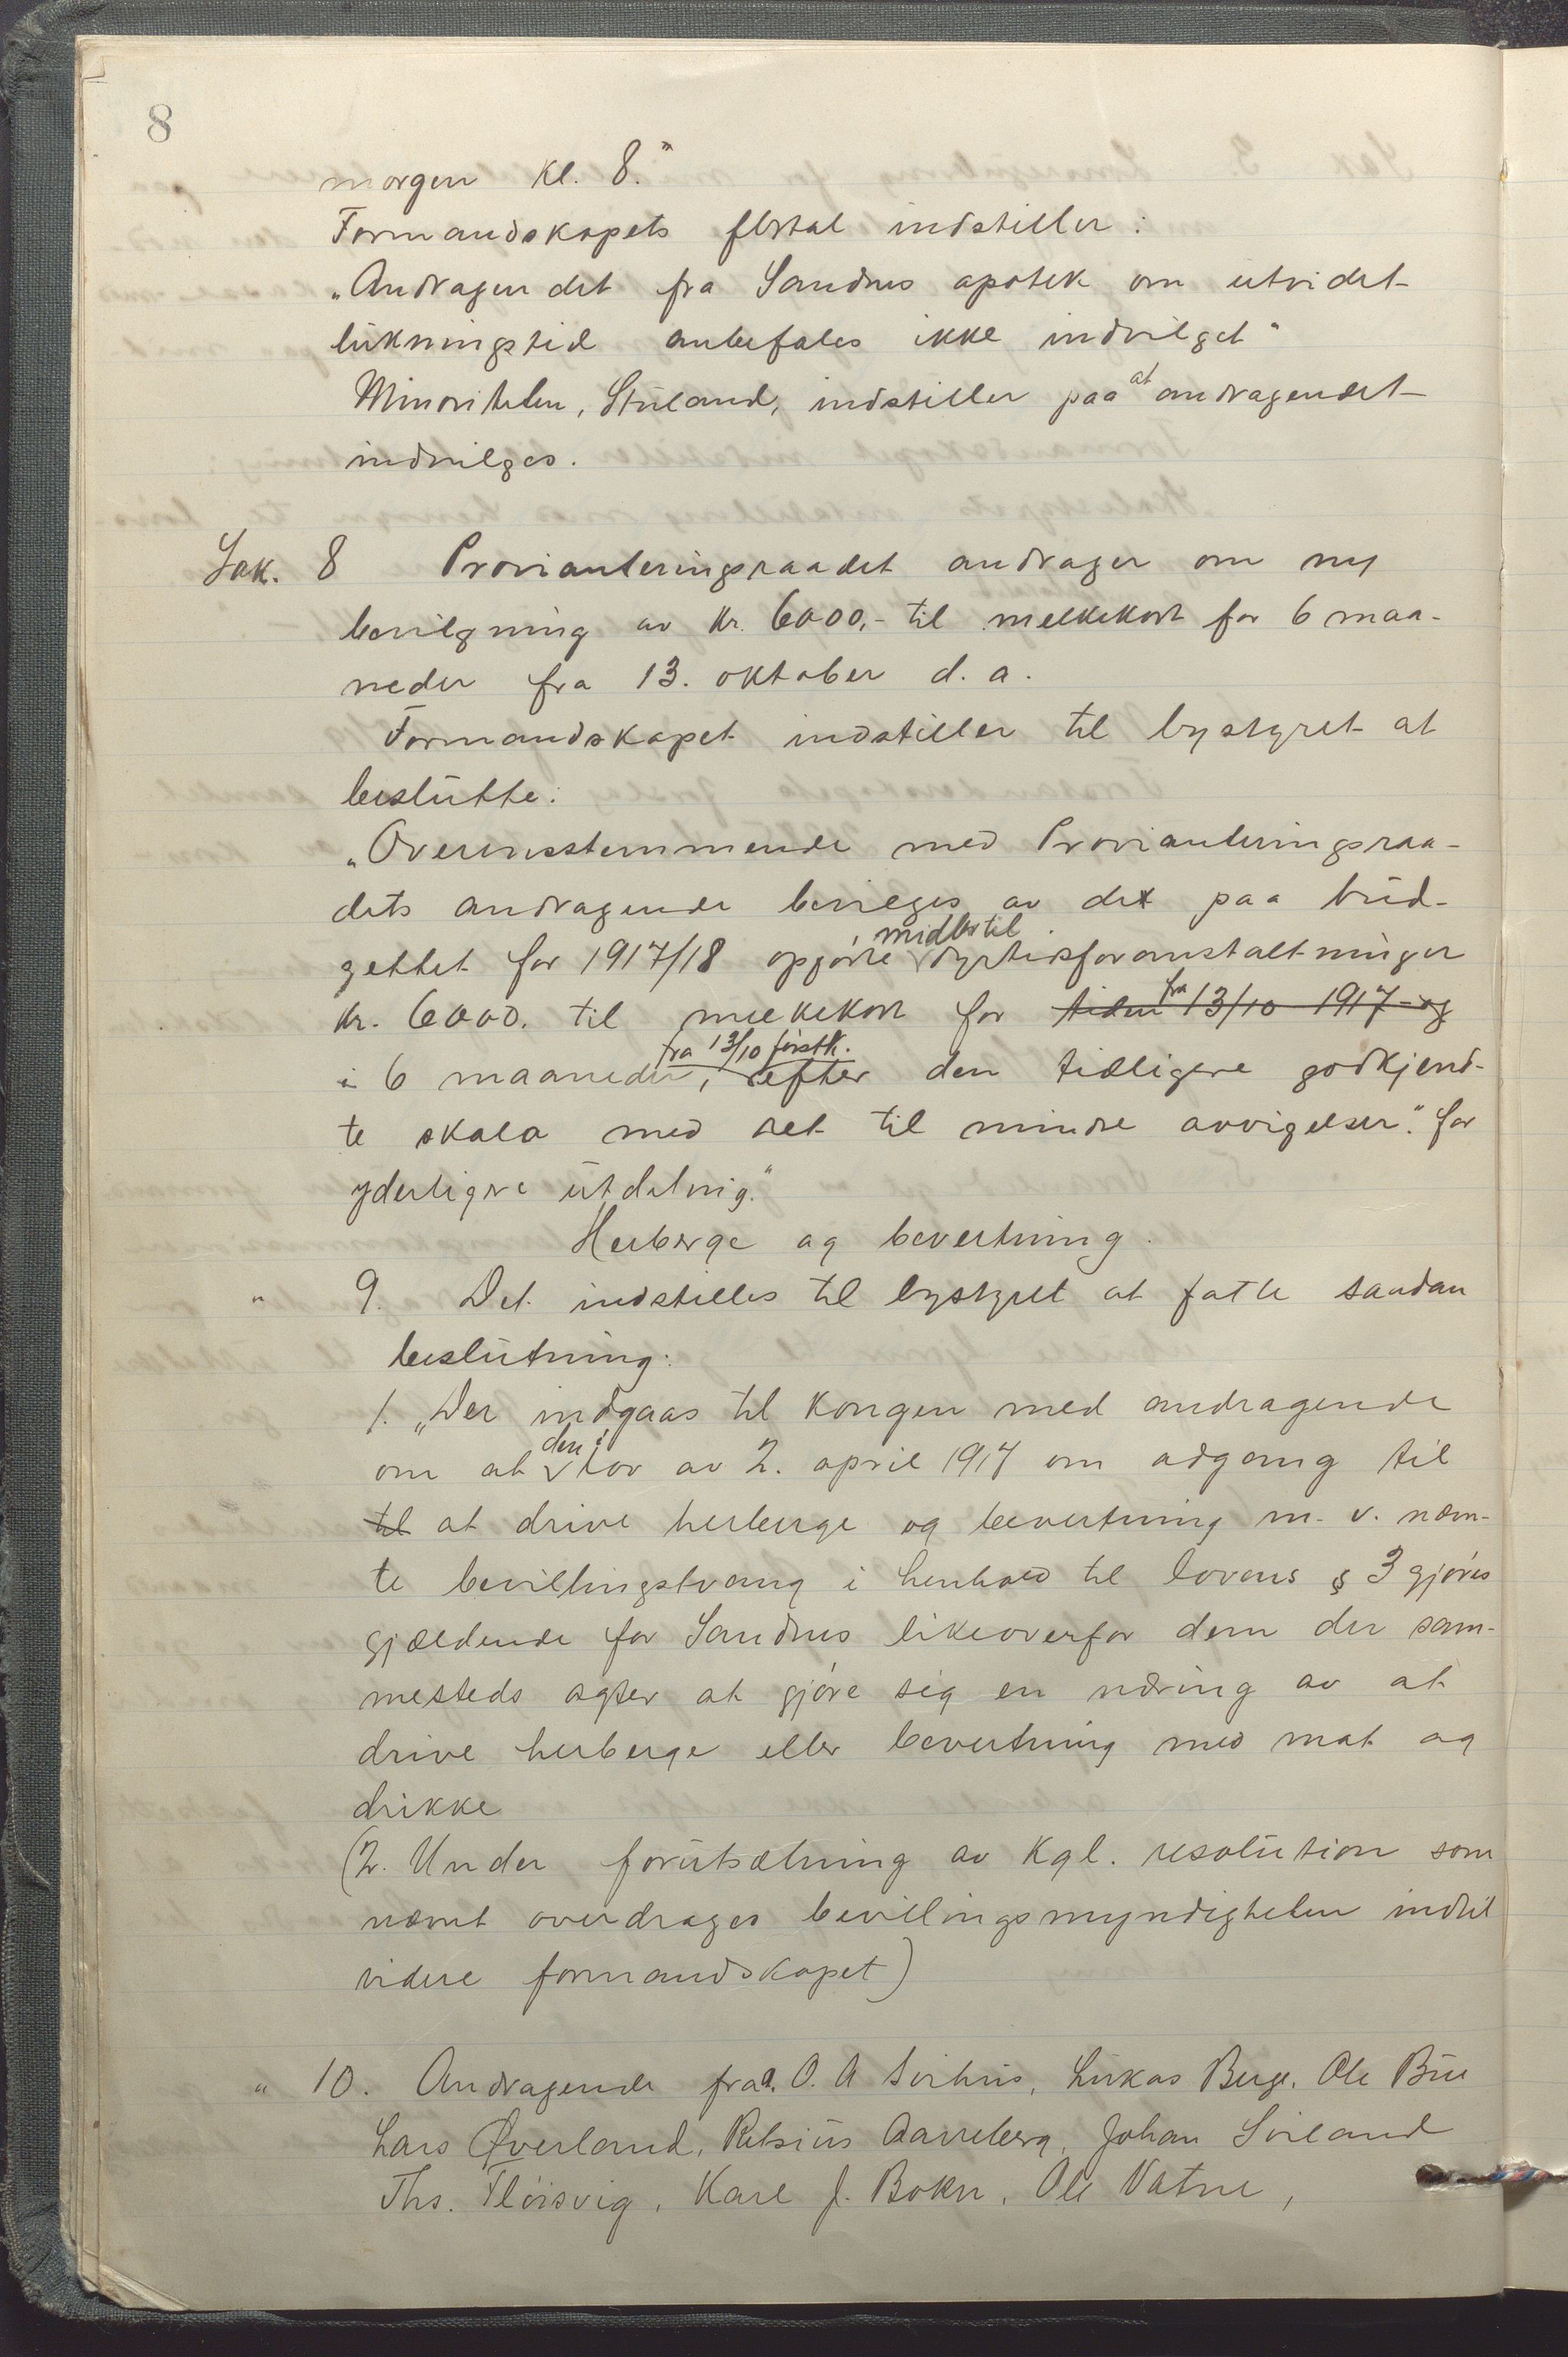 8
morgen kl. 8."
Formandskapets flertal indstiller:
„Andragendet fra Sandnes apotek om utvidet
lukningstid anbefales ikke indvilget"
Minoriteten, Stuland, indstiller paa at andragendet
indvilges.
Sak. 8 Provianteringsraadet andrager om ny
bevilgning av kr. 6000,- til melkekort for 6 maa-
neder fra 13. oktober d. a.
Formandskapet indstiller til bystyret at
beslutte:
„Overensstemmende med Provianteringsraa-
dets andragende bevilges av det paa bud-
gettet for 1917/18 opførte midler til dyrtidsforanstaltninger
kr. 6000. til melkekort for tiden fra 13/10 1917 og
i 6 maaneder, fra 13/10 førstk. efter den tidligere godkjend-
te skala med ret til mindre avvigelser." for
yderligere utdelning."
Herberge og bevertning.
" 9. Det indstilles til bystyret at fatte saadan
beslutning:
1. „Der indgaas til Kongen med andragende
om at den i lov av 2. april 1917 om adgang til
til at drive herberge og bevertning m. v. næm-
te bevillingstvang i henhold til lovens § 3 gjøres
gjældende for Sandnes likeoverfor dem der sam-
mesteds agter at gjøre sig en næring av at
drive herberge eller bevertning med mat og
drikke
(2. Under forutsætning av Kgl. resolution som
nævnt overdrages bevillingsmyndigheten indtil
videre formandskapet)
" 10. Andragende fra O. A. Lukas Berge, Ole Bue
Lars Øverland, Aarreberg, Johan
Ths. Fløisvig, Karl J. Bokn, Ole Vatne,